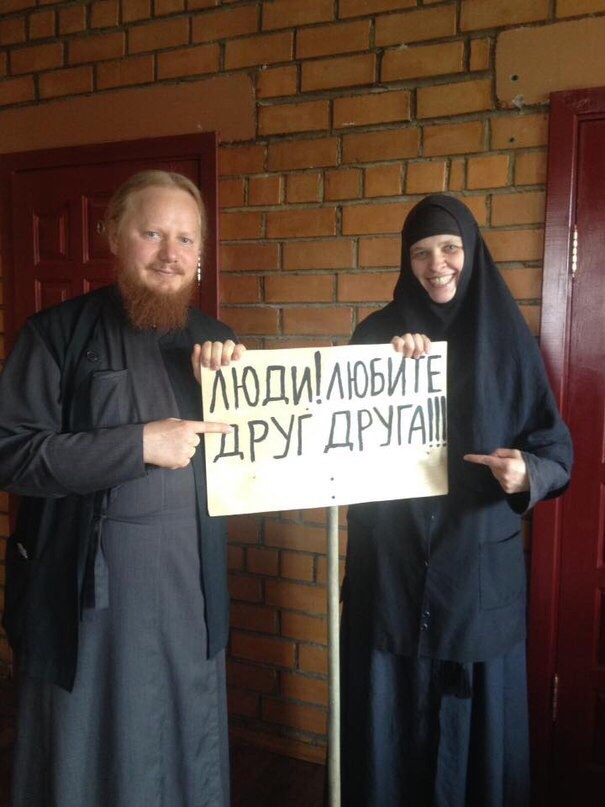 ЛЮДИ! ЛЮБИТЕ
ДРУГ ДРУГА!!!